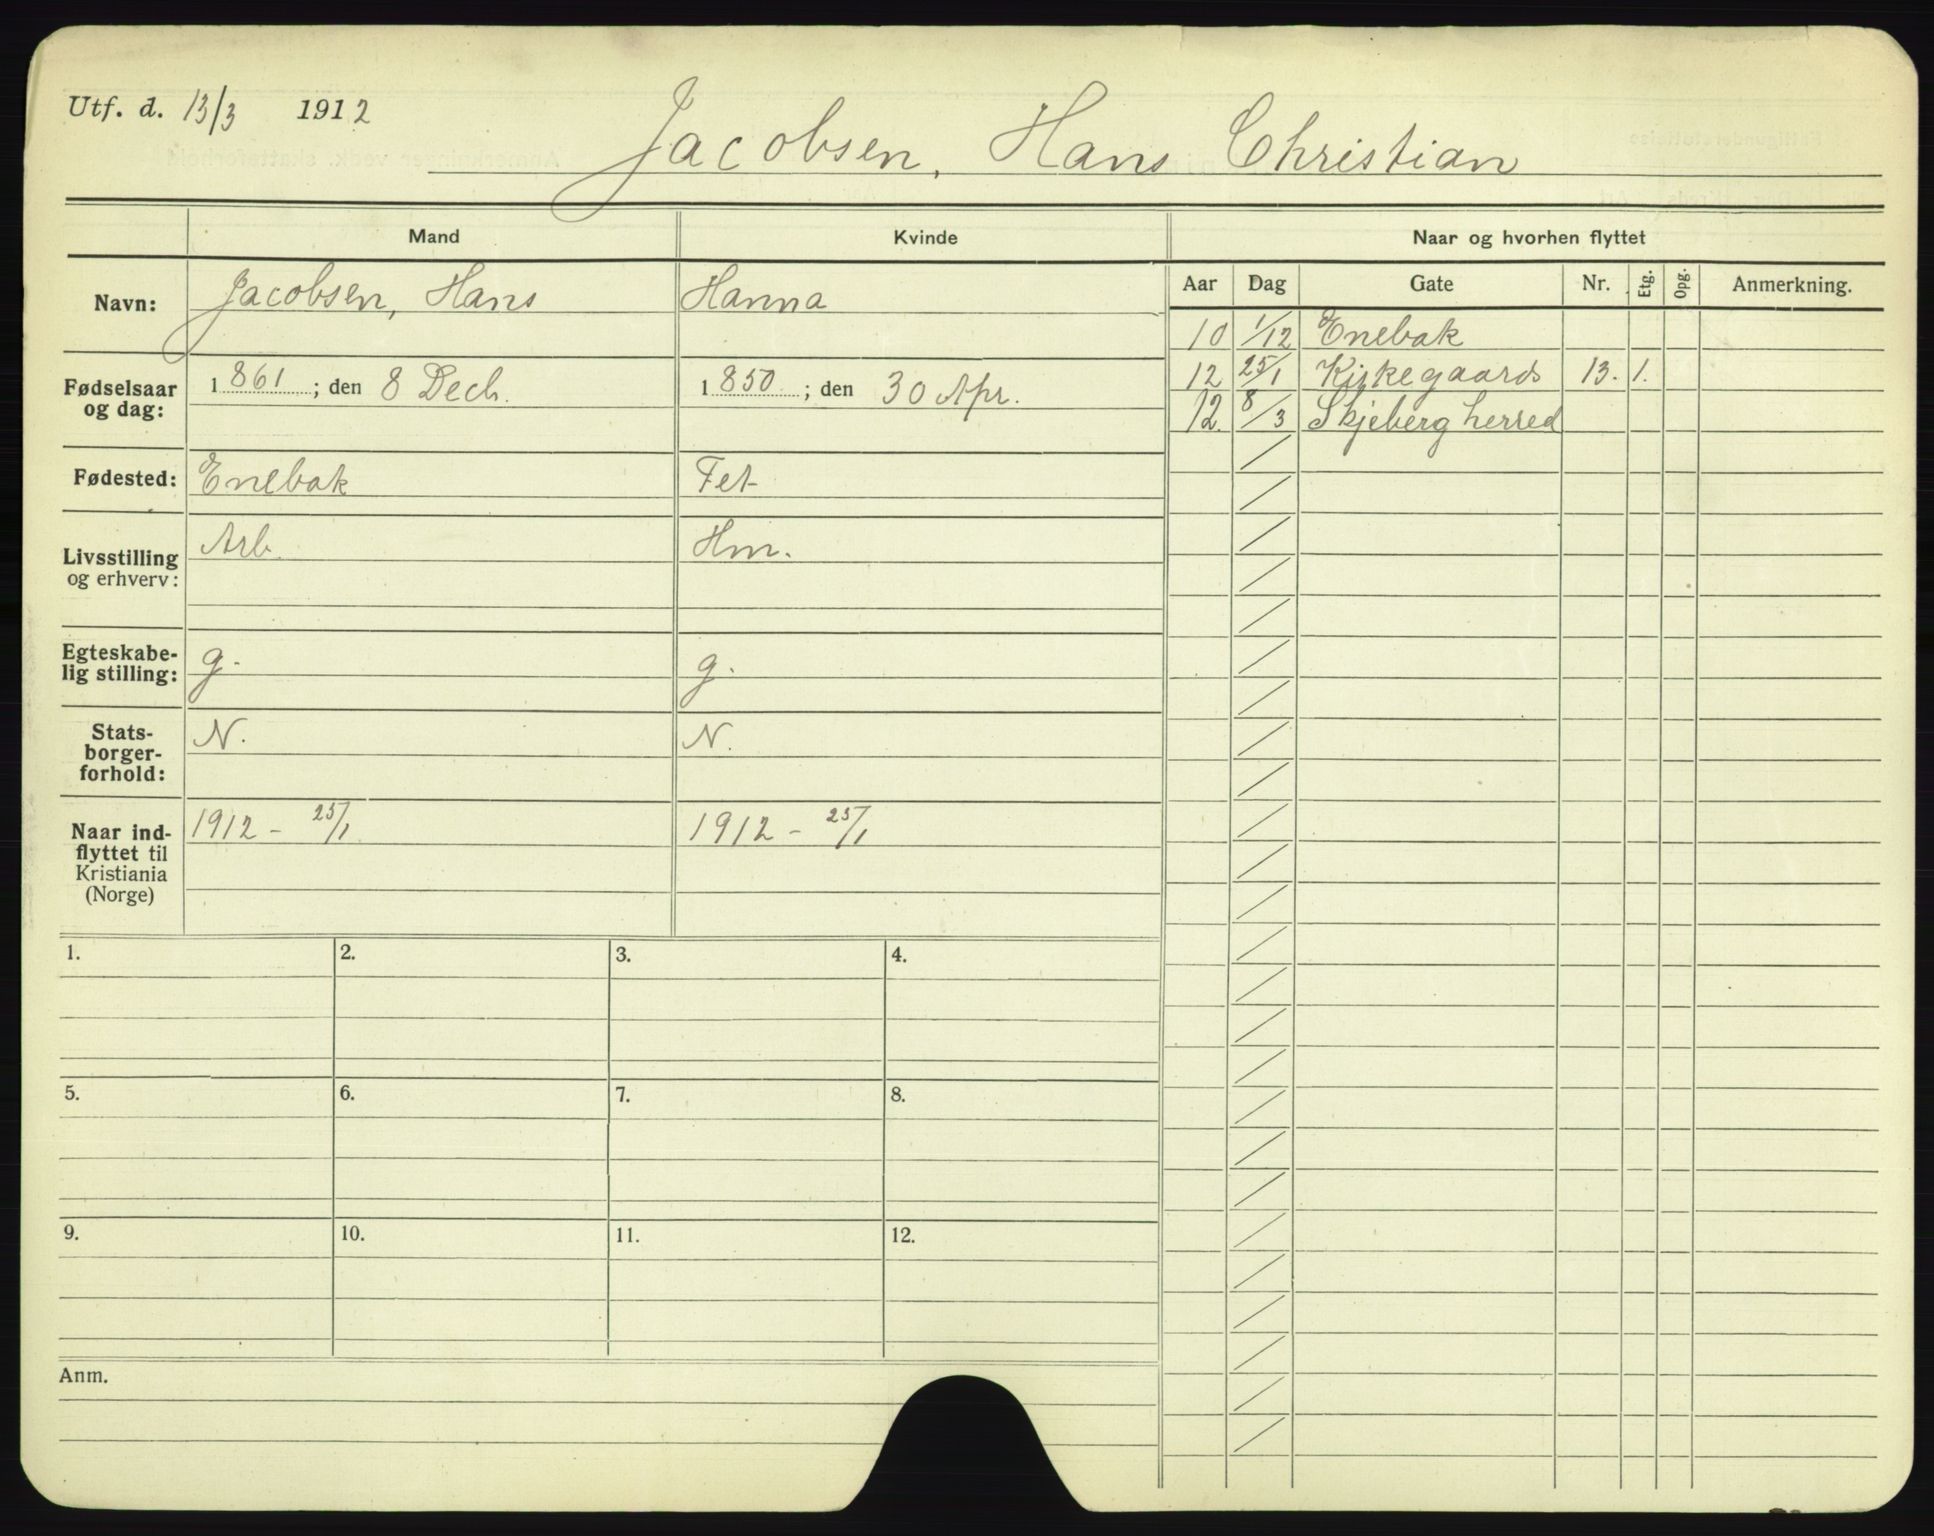 Utf. d. 13/3 1912
Jacobsen, Hans Christian
Mand Kvinde Naar og hvorhen flyttet
Navn: Jacobsen, Hans Hanna
Aar Dag Gate Nr. Etg. Opg. Anmerkning.
10 1/12 Enebak
12 25/1 Kirkegaards 13. 1.
12. 8/3 Skjeberg herred
Fødselsaar og dag: 1861; den 8 Decb. 1850; den 30 Apr.
Fødested: Enebak Fet
Livsstilling og erhverv: Arb. Hm.
Egteskabe-
lig stilling: g. g.
Stats-
borger-
forhold: N. N.
Naar ind-
flyttet til
Kristiania
(Norge) 1912 - 25/1 1912 - 25/1
1. 2. 3. 4.
5. 6. 7. 8.
9. 10. 11. 12.
Anm.